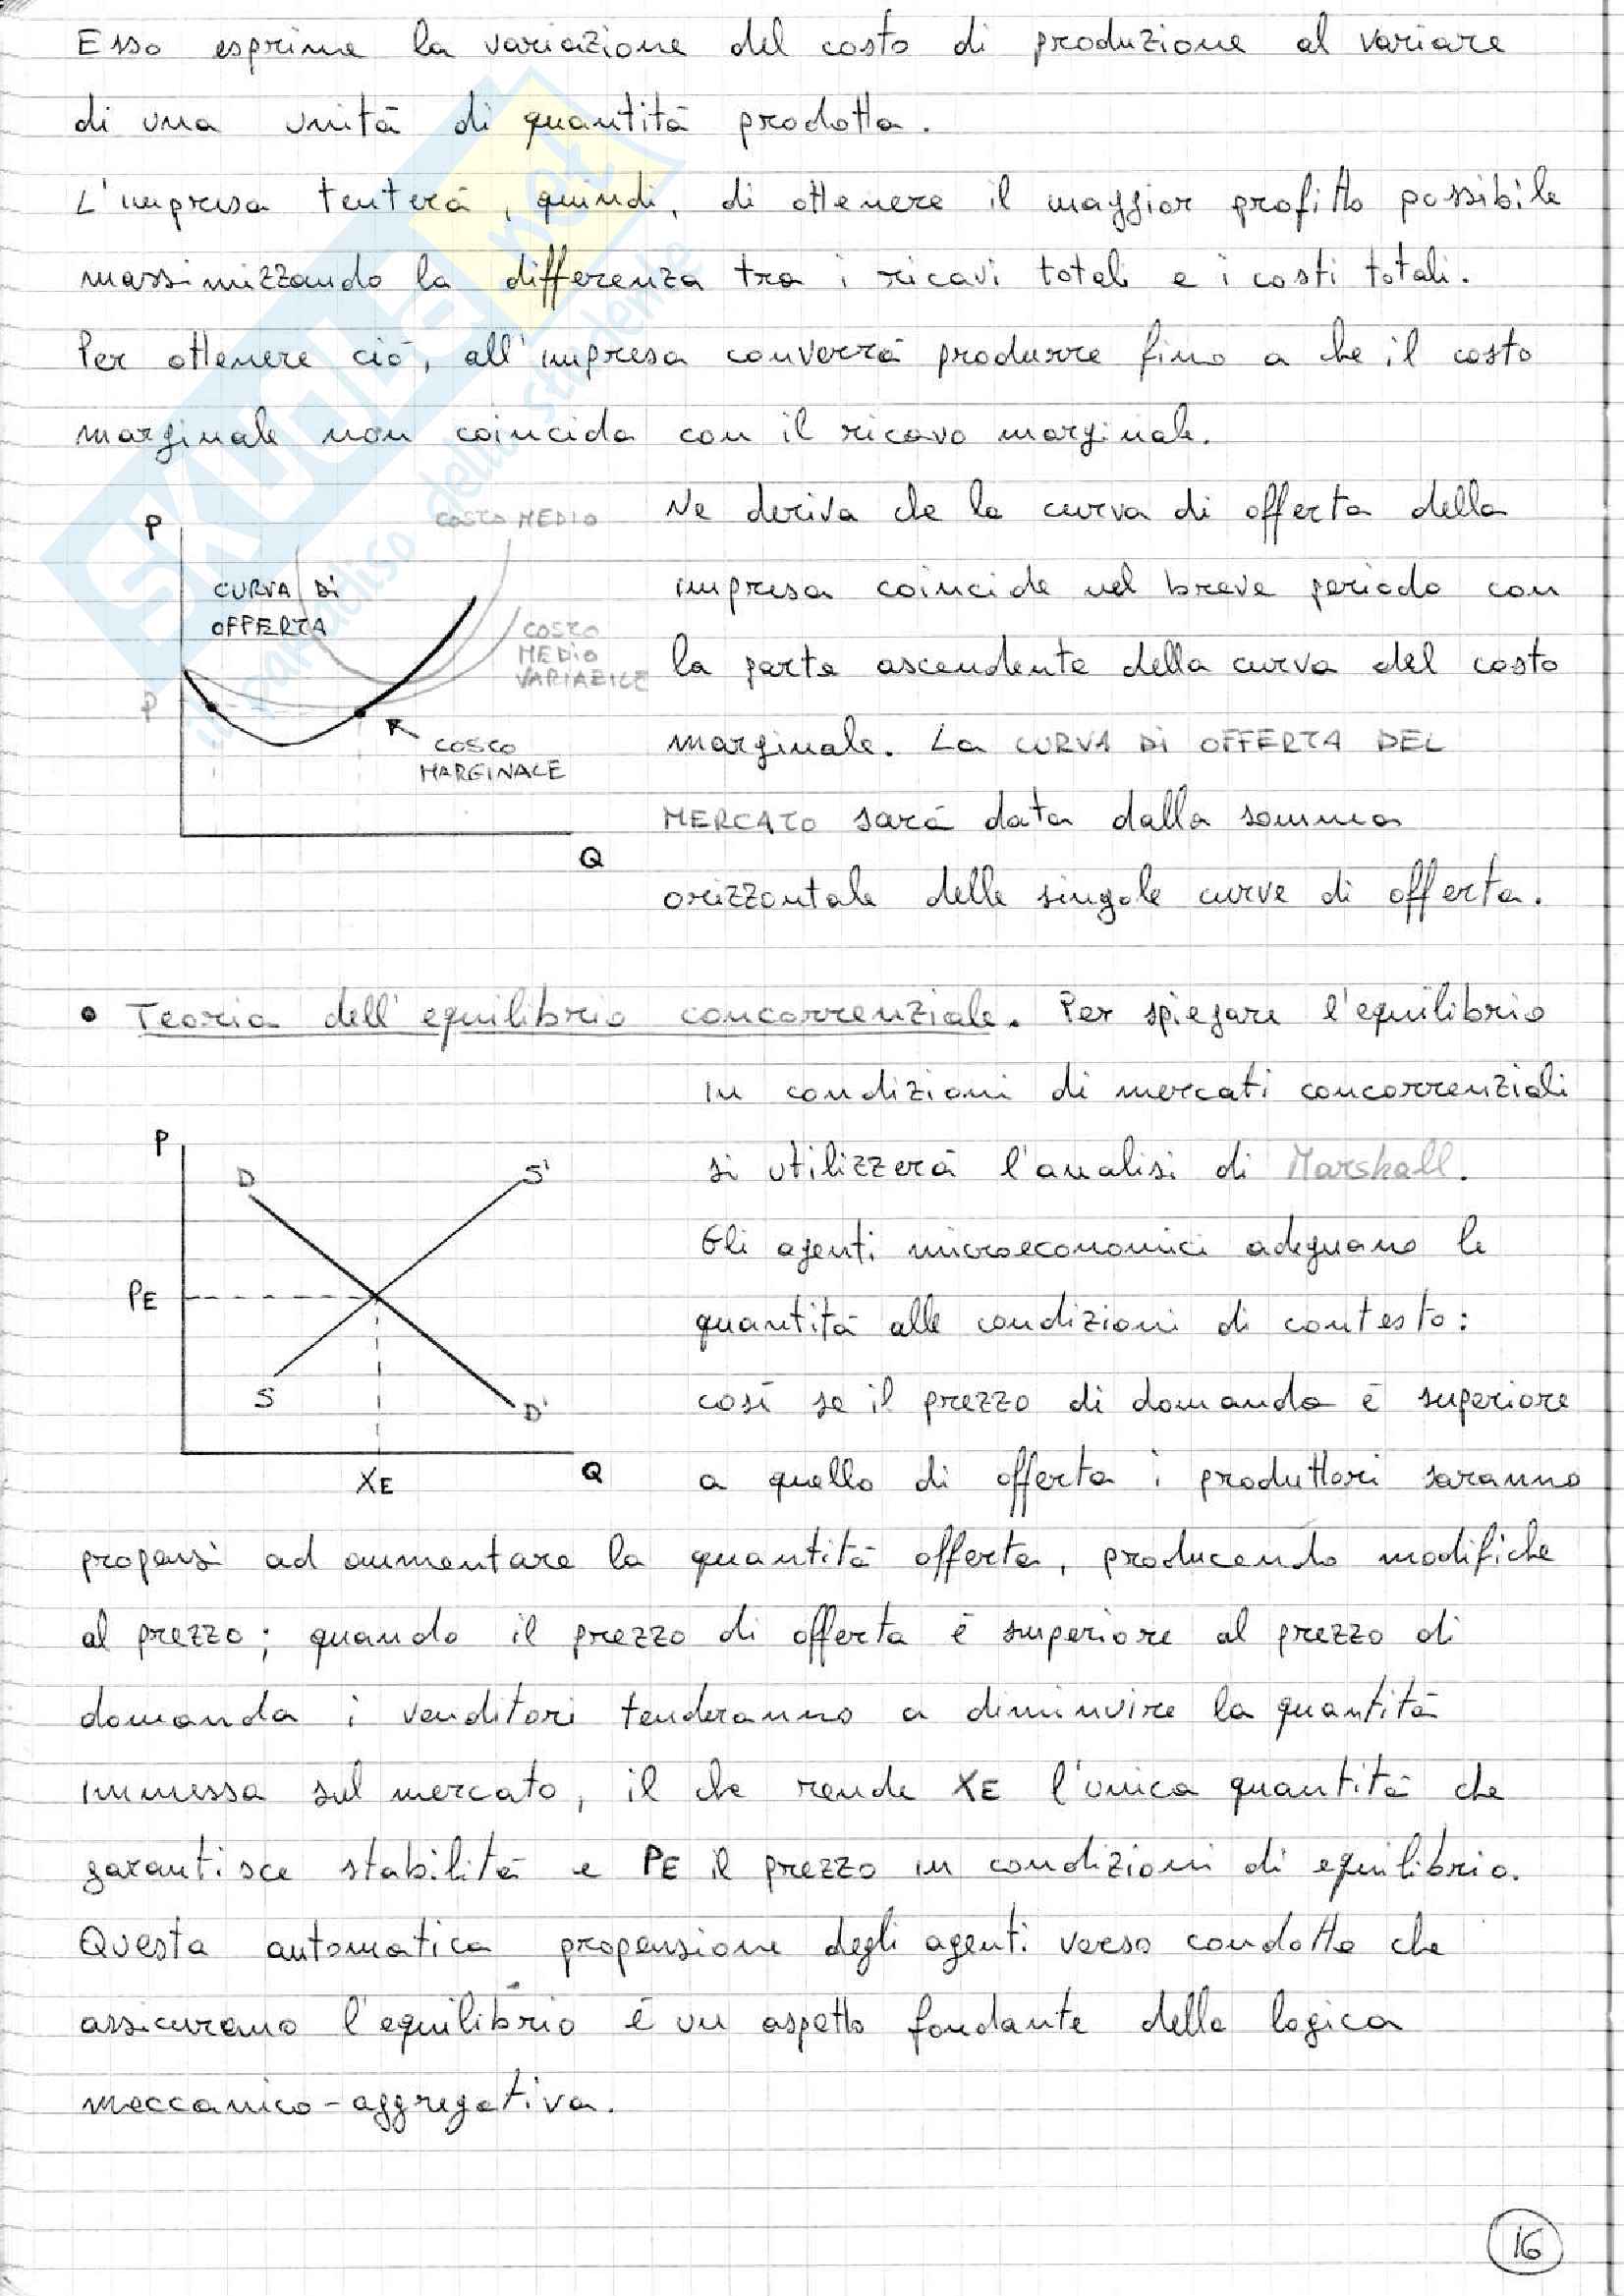 Esso esprime la variazione del costo di produzione al variare
di una unità di quantità prodotta.
L'impresa tenterà, quindi, di ottenere il maggior profitto possibile
massimizzando la differenza tra i ricavi totali e i costi totali.
Per ottenere ciò, all'impresa converrà produrre fino a che il costo
marginale non coincida con il ricavo marginale.
Ne deriva che la curva di offerta della
impresa coincide nel breve periodo con
la parte ascendente della curva del costo
marginale. La CURVA DI OFFERTA DEL
MERCATO sarà data dalla somma
orizzontale delle singole curve di offerta.
P
COSTO MEDIO
CURVA DI
OFFERTA
COSTO
MEDIO
VARIABILE
P
COSTO
MARGINALE
Q
• Teoria dell'equilibrio concorrenziale. Per spiegare l'equilibrio
in condizioni di mercati concorrenziali
si utilizzerà l'analisi di Marshall.
Gli agenti microeconomici adeguano le
quantità alle condizioni di contesto:
così se il prezzo di domanda è superiore
a quello di offerta i produttori saranno
P
D
S'
PE
S
D'
XE
Q
propensi ad aumentare la quantità offerta, producendo modifiche
al prezzo; quando il prezzo di offerta è superiore al prezzo di
domanda i venditori tenderanno a diminuire la quantità
immessa sul mercato, il che rende XE l'unica quantità che
garantisce stabilità e PE il prezzo in condizioni di equilibrio.
Questa automatica propensione degli agenti verso condotte che
assicurano l'equilibrio è un aspetto fondante della logica
meccanico-aggregativa.
16
SKUOLA.net
il paradiso dello studente